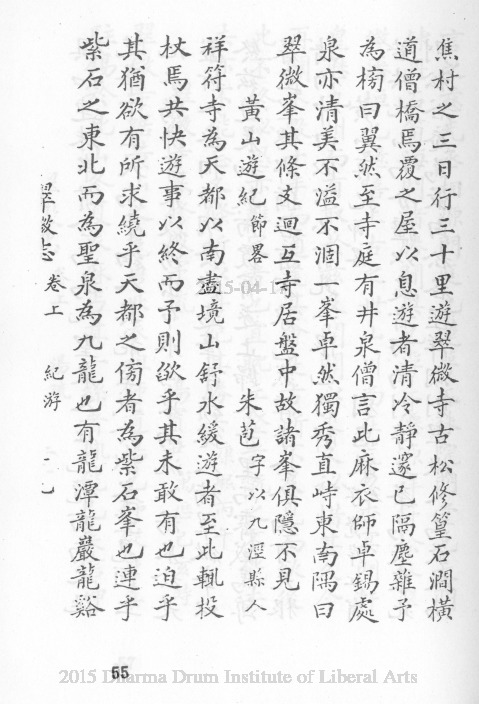 焦村之三日行三十里遊翠微寺古松修篁石澗橫
道僧橋焉覆之屋以息遊者清冷靜邃已隔塵雜予
為榜曰翼然至寺庭有井泉僧言此麻衣師卓錫處
泉亦清美不溢不涸一峯卓然獨秀直峙東南隅曰
翠微峯其條支迴互寺居盤中故諸峯俱隱不見
黃山遊紀 節畧 朱苞 字以九涇縣人
祥符寺為天都以南盡境山舒水緩遊者至此輒投
杖焉共快遊事以終而予則欿乎其未敢有也迫乎
其猶欲有所求繞乎天都之傍者為紫石峯也連乎
紫石之東北而為聖泉為九龍也有龍潭龍巖龍谿
翠微志 卷上 紀游
55
2015 Dharma Drum Institute of Liberal Arts